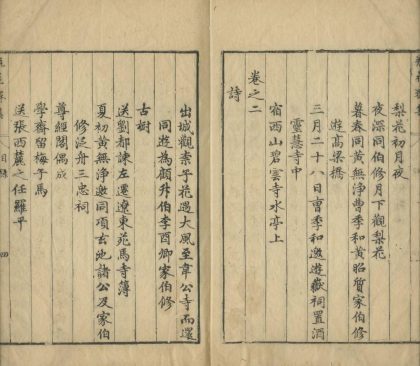 梨花初月夜
夜深同伯修月下觀梨花
暮春同黄無淨曹季和黄昭質家伯修
遊高梁橋
三月二十八日曹季和邀遊嶽祠置酒
靈慧寺中
宿西山碧雲寺水亭上
卷之二
詩
出城觀素子花遇大風至韋公寺而還
同遊為顧升伯李酉卿家伯修
古樹
送劉都諫左遷遼東苑馬寺簿
夏初黄無淨邀同項玄池諸公及家伯
修泛舟三忠祠
尊經閣偶成
學齋留梅子馬
送張西麓之任羅平
目錄